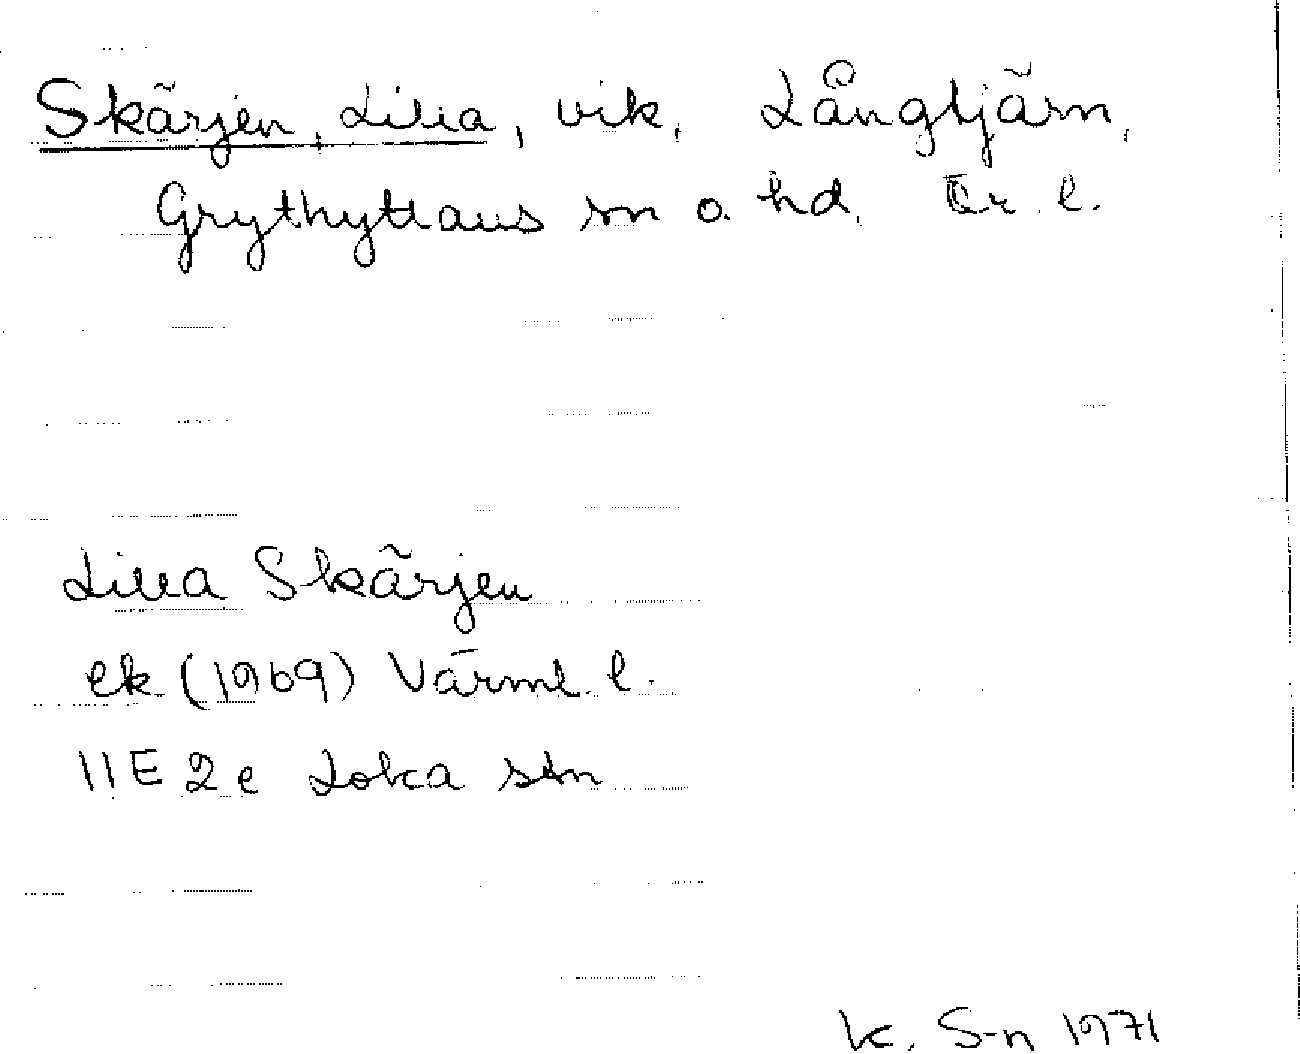 Skärjen, Lilla, vik, Långtjärn,
Grythyttans sn o. hd. Ör. l.
Lilla Skärjen
ek (1969) Värml. l.
11E 2e Loka stn
K. S-n 1971